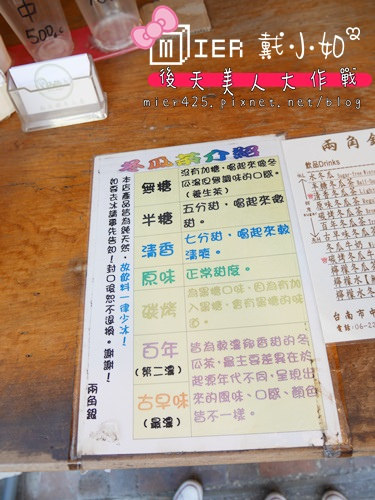 MIER 戴小如
後天美人大作戰
mier425.pixnet.net/blog
中
500cc
冬瓜茶介紹
無糖
沒有加糖，喝起來像冬
瓜湯但無調味的口感。
(養生茶)
半糖
五分甜，喝起來微
甜。
清香
七分甜，喝起來較
清爽。
原味
正常甜度。
碳烤
為蜜糖口味，因為有加
入蜜糖，會有蜜糖的味
道。
百年
(第二濃)
古早味
(最濃)
皆為較濃郁香甜的冬
瓜茶，最主要差異在於
起源年代不同，呈現出
來的風味、口感、顏色
皆不一樣。
本店產品皆為純天然，故飲料一律少冰！
如需去冰請事先告知！封口喝恕不退換。謝謝！
兩角銀
兩角銀
飲品Drinks
冬瓜茶
半糖冬瓜茶
檸檬冬瓜
台南市中
電話：06-22